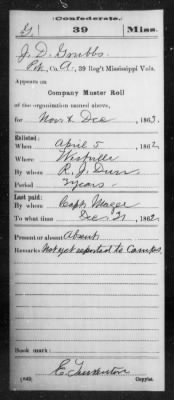 Confederate.
G 39 Miss.
J. D. Grubbs
Pvt, Co. A., 39 Reg't Mississippi Vols.
Appears on
Company Muster Roll
of the organization named above,
for Nov & Dec, 1863.
Enlisted:
When April 5, 1862
Where Westville
By whom R. J. Durr
Period 3 years
Last paid:
By whom Capt. Magee
To what time Dec 31, 1862.
Present or absent Absent
Remarks: Not yet reported to Camps.
Book mark:
E.
(642) Copyist.